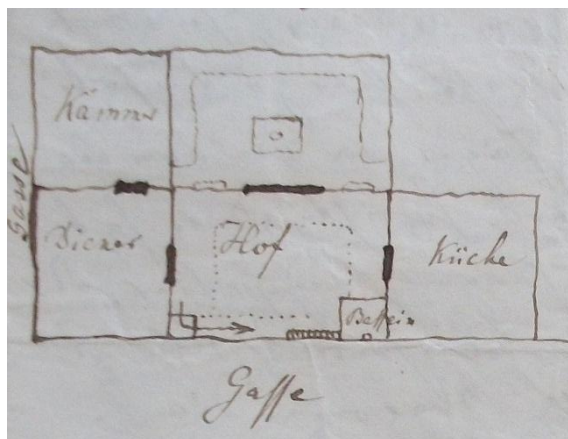 Kammer
Gasse
Diener
Hof
Küche
Bassein
Gasse